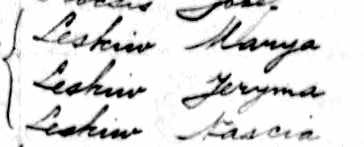 Leskiw Marya
Leskiw Jeryma
Leskiw Nascia